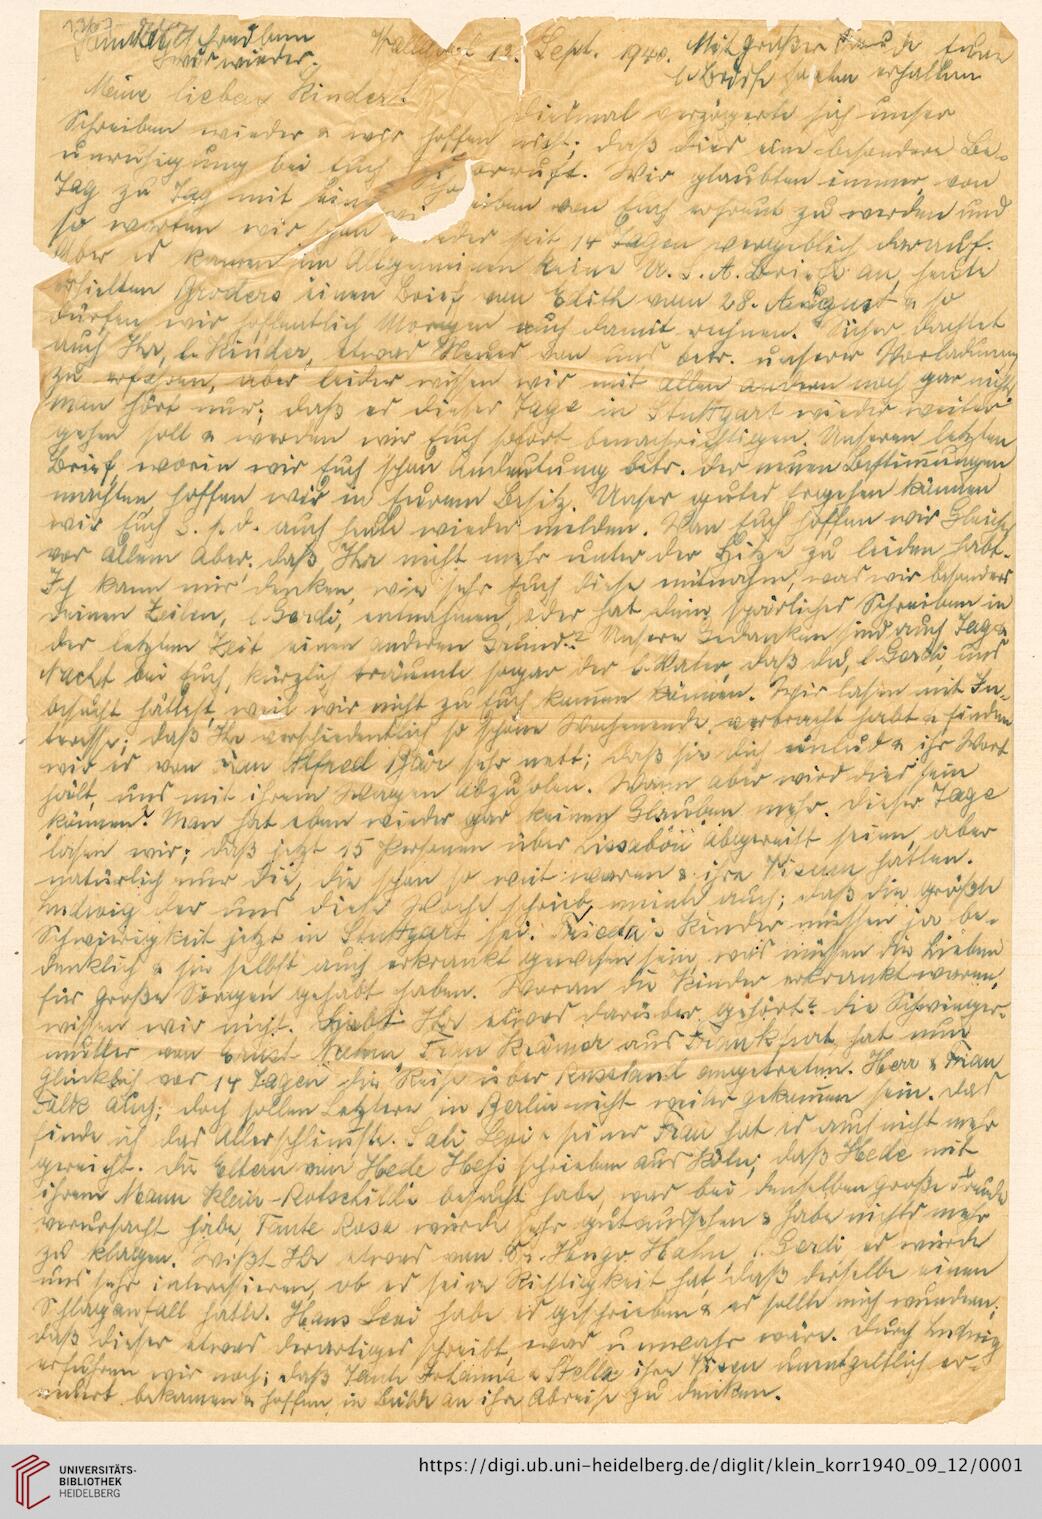 Walldorf 12. Sept. 1940. Mit großer Freude Eure
wir wieder. l. Briefe soeben erhalten
Meine lieben Kinder!
Diesmal verzögerte sich unser
Schreiben wieder & wir hoffen nicht; daß dies eine besondere Be-
unruhigung bei Euch hervorruft. Wir glaubten immer von
Tag zu Tag mit einem Schreiben von Euch erfreut zu werden und
so warten wir schon wieder seit 14 Tagen vergeblich darauf.
Aber es kamen im Allgemeinen keine U.S.A. Briefe an, heute
erhielten Broders einen Brief von Edith vom 28. August & so
dürfen wir hoffentlich Morgen auch damit rechnen. Sicher dachtet
auch Ihr, l. Kinder, etwas Neues von uns betr. unserer Vorladung
zu erfahren, aber leider wissen wir mit allen andern noch gar nichts,
man hört nur; daß es dieser Tage in Stuttgart wieder weiter
gehen soll & werden wir Euch sofort benachrichtigen. Unseren letzten
Brief worin wir Euch schon Andeutung betr. der neuen Bestimmungen
machten hoffen wir in Eurem Besitz. Unser gutes Ergehen können
wir Euch G. s. d. auch heute wieder melden. Von Euch hoffen wir Gleiches
vor allem aber, daß Ihr nicht mehr unter der Hitze zu leiden habt.
Ich kann mir denken, wie sehr Euch diese mitnahm, was wir besonders
Deinen Zeilen, l. Gerdi, entnahmen, oder hat Dein spärliches Schreiben in
der letzten Zeit einen anderen Grund? Unsere Gedanken sind auch Tag &
Nacht bei Euch, kürzlich träumte sogar der l. Vater, daß du, l. Gerdi, uns
besucht hättest, weil wir nicht zu Euch kommen können. Wir lasen mit In-
teresse; daß Ihr verschiedentlich so schöne Wochenende verbracht habt & finden
wir es von Frau Alfred Bär sehr nett; daß sie Dich einlud & ihr Wort
hält, uns mit ihrem Wagen abzuholen. Wann aber wird dies sein
können? Man hat eben wieder gar keinen Glauben mehr. Dieser Tage
lasen wir; daß jetzt 15 Personen über Lissabon abgereist seien, aber
natürlich nur die, die schon so weit waren & ihre Visum hatten.
Ludwig der uns diese Woche schrieb meinte auch; daß die größte
Schwierigkeit jetzt in Stuttgart sei. Frieda's Kinder müssen ja be-
denklich & sie selbst auch erkrankt gewesen sein, was müssen die Lieben
für große Sorgen gehabt haben. Woran die Kinder erkrankt waren,
wissen wir nicht. Habt Ihr etwas darüber gehört? Die Schwieger-
mutter von Ernst Frau Krämer aus Frankfurt hat nun
glücklich vor 14 Tagen die Reise über Russland angetreten. Herr & Frau
Falk auch; doch sollen Letztere in Berlin nicht weiter gekommen sein. Das
finde ich das Allerschlimmste. Sali Levi & seiner Frau hat es auch nicht mehr
gereicht. Die Eltern von Hede Hess schrieben aus Köln; daß Hede mit
ihrem Mann Klein-Rotschilds besucht habe, was bei denselben große Freude
verursacht habe, Tante Rosa würde sehr gut aussehen & habe nichts mehr
zu klagen. Wißt Ihr etwas von Dr. Hugo Hahn, l. Gerdi es würde
uns sehr interessieren, ob es seine Richtigkeit hat, daß derselbe einen
Schlaganfall hatte. Hans Levi habe es geschrieben & es sollte mich wundern,
daß dieser etwas derartiges schreibt, was unwahr wäre. Durch Ludwig
erfuhren wir noch; daß Tante Johanna & Stella ihre Visen unentgeltlich er-
neuert bekamen & hoffen, in Bälde an ihre Abreise zu denken.
UNIVERSITÄTS-
BIBLIOTHEK
HEIDELBERG
https://digi.ub.uni-heidelberg.de/diglit/klein_korr1940_09_12/0001